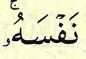 نَفۡسَهُۥۚ